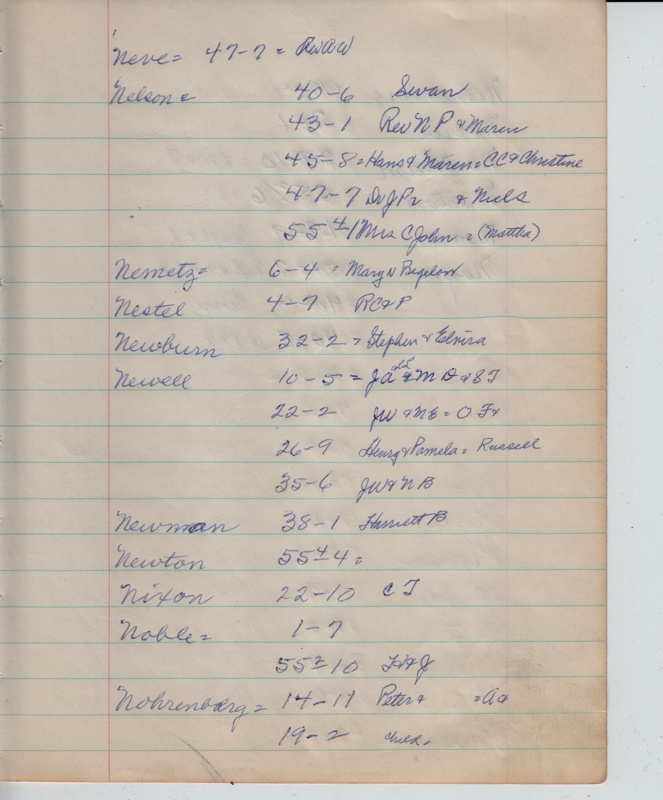 Neve = 47-7 = RWAW
Nelson = 40-6 Swan
43-1 Rev N P & Maren
45-8 = Hans & Maren = CC & Christine
47-7 Dr J P & Niels
55 4/1 Mrs C John = (Mattha)
Nemetz = 6-4 = Mary N Bigelow
Nestel 4-7 RC & P
Newburn 32-2 = Stephen & Elvira
Newell 10-5 = JA & M D & S T
22-2 JW & NE = O F &
26-9 Henry & Pamela = Russell
35-6 JW & N B
Newman 38-1 Harriett B
Newton 55 4 4 =
Nixon 22-10 C T
Noble = 1-7
55 10
Nohrenberg = 14-11 Peter & = A &
19-2 child -